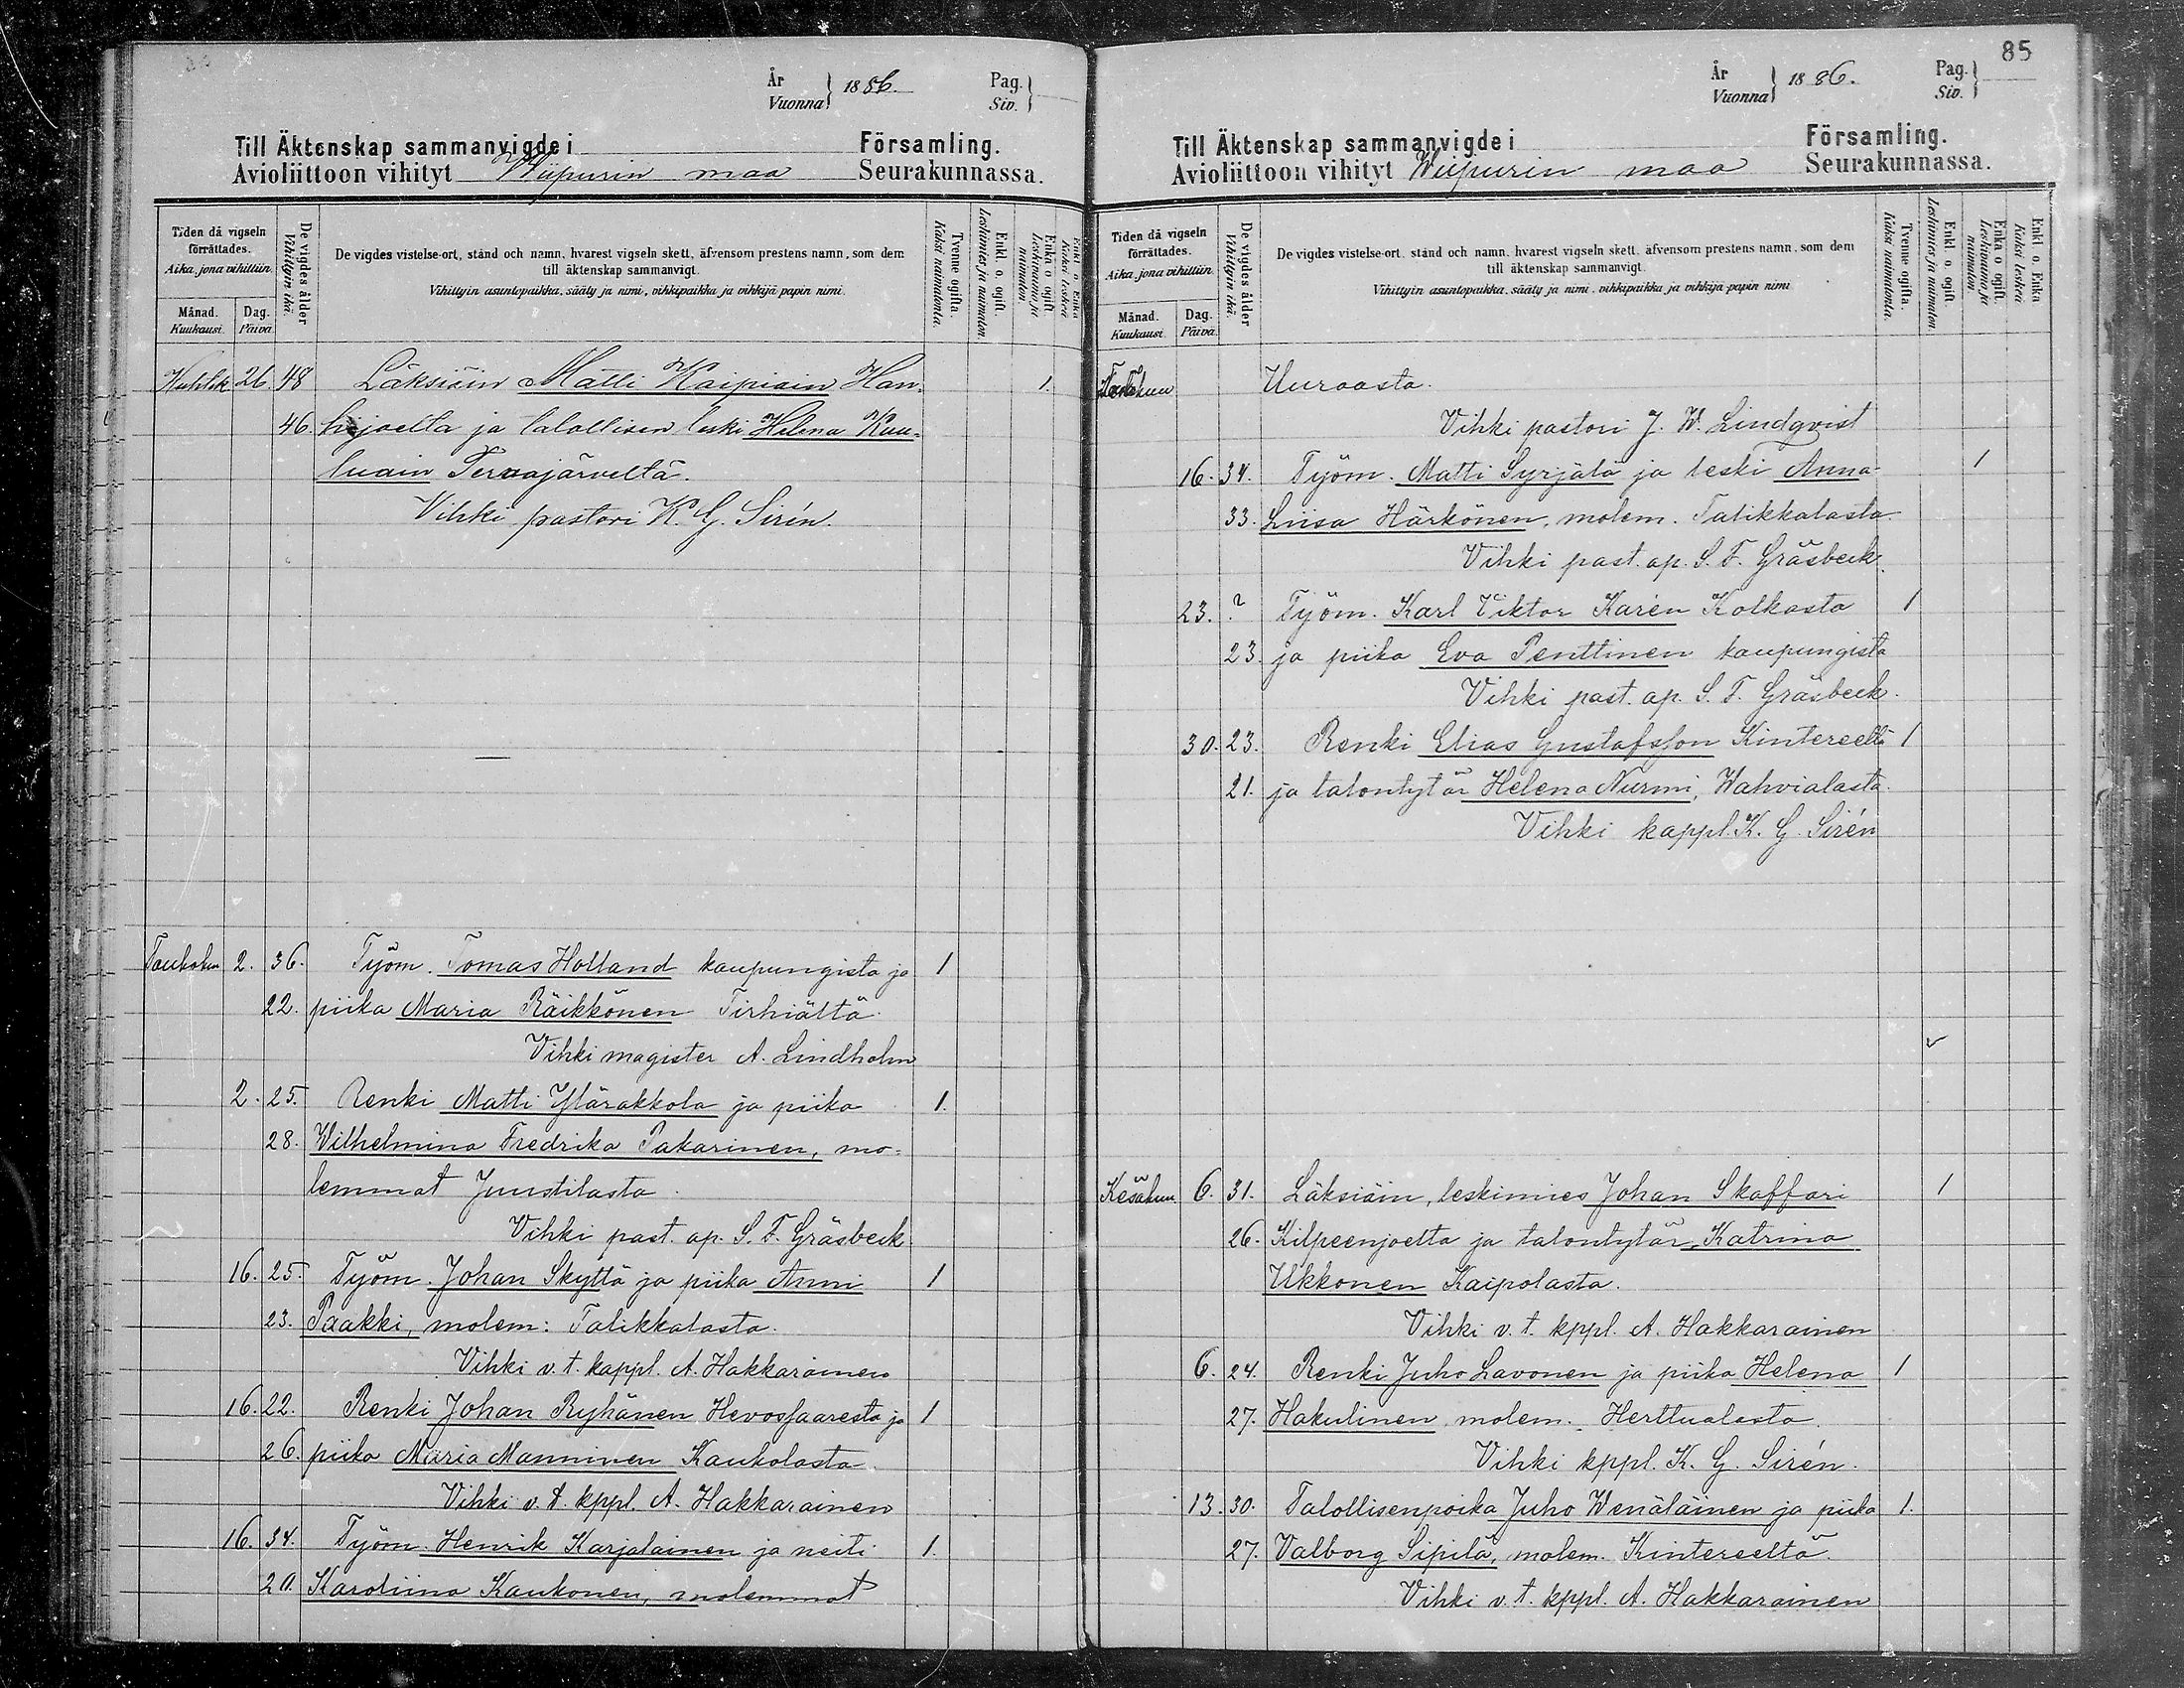 År
Vuonna } 1886. Pag.
Siv. }
Till Äktenskap sammanvigde i Församling.
Avioliittoon vihityt Wiipurin maa Seurakunnassa.
Tiden då vigseln förrättades.
Aika, jona vihittiin.
Månad.
Kuukausi.
Dag.
Päivä.
De vigdes ålder
Vihittyin ikä.
De vigdes vistelse-ort, stånd och namn, hvarest vigseln skett, äfvensom prestens namn, som dem
till äktenskap sammanvigt.
Vihittyin asuntopaikka, sääty ja nimi, vihkipaikka ja vihkijä papin nimi.
Tvenne ogifta.
Kaksi naimatonta.
Enkl. o. ogift.
Leskimies ja naimaton.
Enka o ogift.
Leskivaimo ja naimaton.
Enkl. o. Enka
Kaksi leskeä
Huhtik 26. 48 Läksiäin Matti Kaipiain Han- 1.
46. hijoelta ja talollisen leski Helena Kuu-
luain Tervajärveltä.
Vihki pastori K. G. Sirén.
Toukokuu 2. 36. Työm. Tomas Holland kaupungista ja 1
22. piika Maria Räikkönen Tirhiältä.
Vihki magister A. Lindholm
2. 25. Renki Matti Ylärakkola ja piika 1.
28. Wilhelmina Fredrika Pakarinen, mo-
lemmat Juustilasta.
Vihki past. ap. S. F. Gräsbeck.
16. 25. Työm. Johan Skyttä ja piika Anni 1
23. Paakki, molem: Talikkalasta.
Vihki v. t. kappl. A. Hakkarainen
16. 22. Renki Johan Ryhänen Hevossaaresta ja 1
26. piika Maria Manninen Kaukolasta.
Vihki v. t. kppl. A. Hakkarainen
16. 34. Työm. Henrik Karjalainen ja neiti 1.
20. Karoliina Kaukonen, molemmat
85
År
Vuonna } 1886. Pag.
Siv. }
Till Äktenskap sammanvigde i Församling.
Avioliittoon vihityt Wiipurin maa Seurakunnassa.
Tiden då vigseln förrättades.
Aika, jona vihittiin
Månad.
Kuukausi.
Dag.
Päivä.
De vigdes ålder
Vihittyin ikä.
De vigdes vistelse-ort, stånd och namn, hvarest vigseln skett, äfvensom prestens namn, som dem
till äktenskap sammanvigt.
Vihittyin asuntopaikka, sääty ja nimi, vihkipaikka ja vihkijä papin nimi
Tvenne ogifta.
Kaksi naimatonta.
Enkl o. ogift
Leskimies ja naimaton.
Enka o ogift.
Leskivaimo ja naimaton
Enkl o. Enka
Kaksi leskeä
Uuraasta.
Vihki pastori J. W. Lindqvist
16. 34. Työm. Matti Syrjälä ja leski Anna- 1
33. Liisa Härkönen, molem. Talikkalasta.
Vihki past. ap. S. F. Gräsbeck.
23. ? Työm. Karl Viktor Karén Kolkasta 1
23. ja piika Eva Penttinen kaupungista
Vihki past. ap. S. F. Gräsbeck.
30. 23. Renki Elias Gustafsson Kintereeltä 1
21. ja talontytär Helena Nurmi, Wahvialasta.
Vihki kappl. K. G. Sirén
Kesäkuu. 6. 31. Läksiäin, leskimies Johan Skaffari 1
26. Kilpeenjoelta ja talontytär Katrina
Ukkonen Kaipolasta.
Vihki v. t. kppl. A. Hakkarainen
6. 24. Renki Juho Lavonen ja piika Helena 1
27. Hakulinen molem. Herttualasta.
Vihki kppl. K. G. Sirén.
13. 30. Talollisenpoika Juho Wenäläinen ja piika 1.
27. Valborg Sipilä, molem. Kintereeltä.
Vihki v. t. kppl. A. Hakkarainen